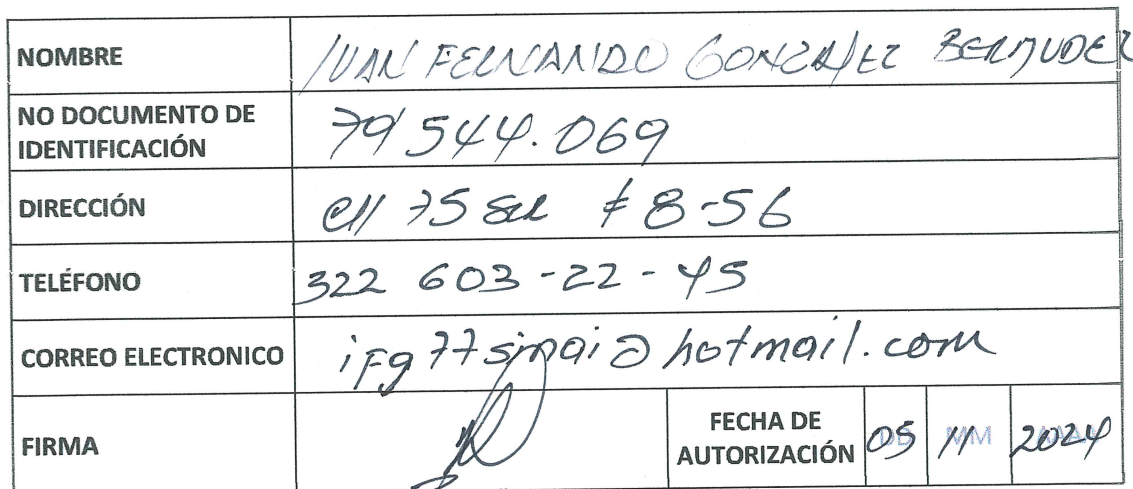 NOMBRE IVAN FERNANDO GONZALEZ BERMUDEZ
NO DOCUMENTO DE
IDENTIFICACIÓN 79'544.069
DIRECCIÓN Cll 75 sur # 8-56
TELÉFONO 322 603-22-45
CORREO ELECTRONICO ifg77sinai@hotmail.com
FIRMA
FECHA DE
AUTORIZACIÓN 05 11 2024